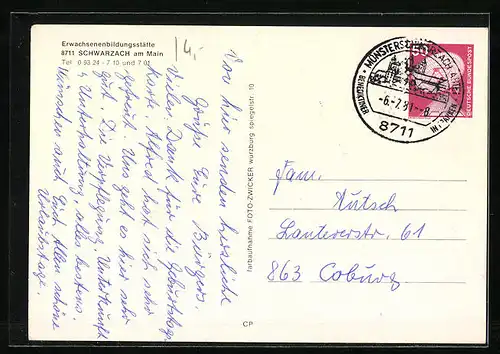 Erwachsenenbildungsstätte
8711 SCHWARZACH am Main
Tel 0 93 24 - 7 10 und 7 01
14,-
Von hier senden herzliche
Grüße Eure Bürgers.
Vielen Dank für die Geburtstags
karte. Alfred hat sich sehr
gefreut. Uns geht es hier sehr
gut. Die Verpflegung, Unterkunft
u. Unterhaltung, alles bestens.
Wünschen auch Euch Allen schöne
Urlaubstage.
farbaufnahme FOTO-ZWICKER würzburg spiegelstr. 10
CP
MÜNSTERSCHWARZACH ABTEI
BENEDIKTINER
-6.-7.81.-8
8711
50
DEUTSCHE BUNDESPOST
Fam.
Rutsch
Lautererstr. 61
863 Coburg